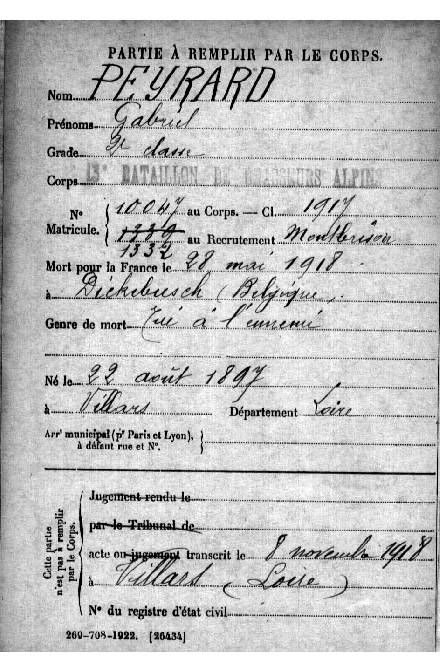 PARTIE À REMPLIR PAR LE CORPS.
Nom PEYRARD
Prénoms Gabriel
Grade 2e classe
Corps 13e BATAILLON DE CHASSEURS ALPINS
N° Matricule. { 10047 au Corps. — Cl. 1917
1339
1332 au Recrutement Montbrison
Mort pour la France le 28 mai 1918
à Dickebusch (Belgique)
Genre de mort Tué à l'ennemi
Né le 22 août 1897
à Villars Département Loire
Arrt municipal (pr Paris et Lyon),
à défaut rue et N°. }
Cette partie
n'est pas à remplir
par le Corps.
Jugement rendu le
par le Tribunal de
acte ou jugement transcrit le 8 novembre 1918
à Villars (Loire)
N° du registre d'état civil
269-708-1922. [26434]